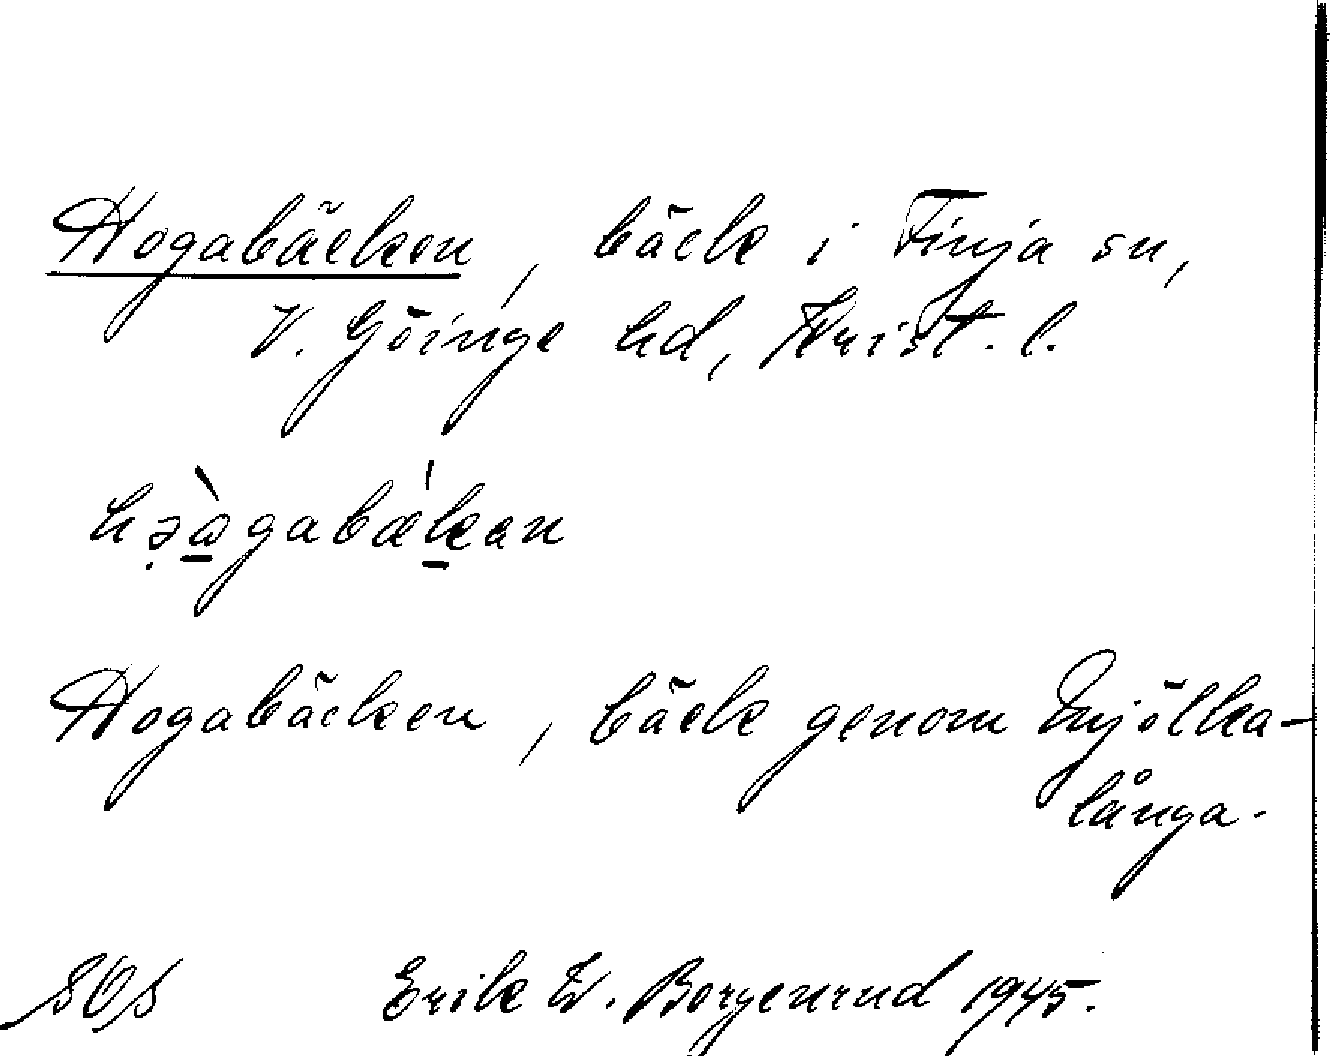 Hogabäcken, bäck i Finja sn,
V. Göinge hd, Krist. l.
hə̣àgabæ̀kan
Hogabäcken, bäck genom Mjölka-
långa.
SOS Erik W. Borgenrud 1945.